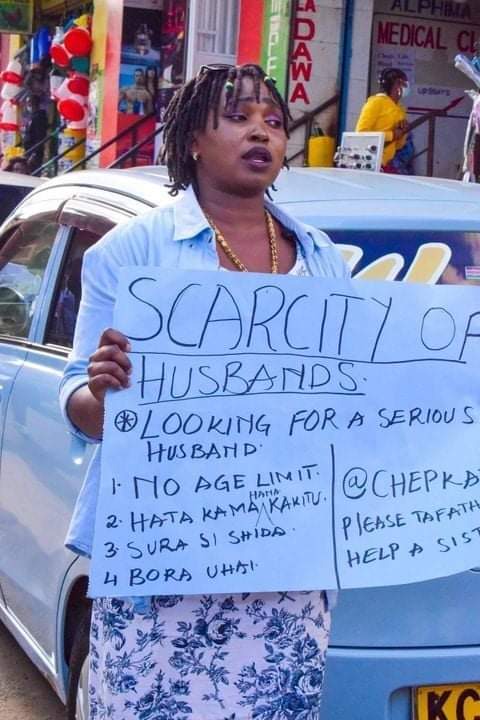 ALPHIMA
MEDICAL CL
DAWA
SCARCITY OF
HUSBANDS.
* LOOKING FOR A SERIOUS
HUSBAND.
1. NO AGE LIMIT.
2. HATA KAMA HANA KAKITU.
3. SURA SI SHIDA.
4 BORA UHAI.
@CHEPKA
PLEASE TAFATH
HELP A SIST
KC